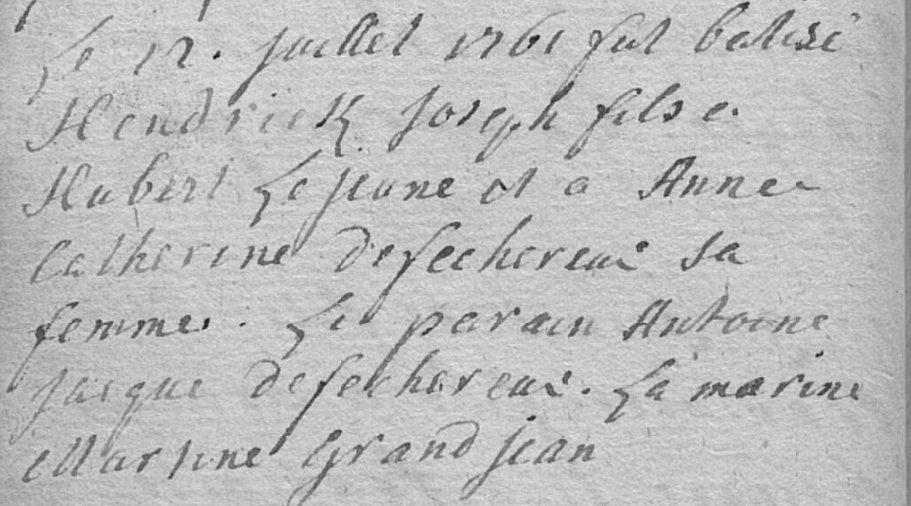 Le 12. juillet 1761 fut batisé
Hendrick Joseph fils a
Hubert Le jeune et a Anne
Catherine defechereux sa
femme. Le parain Antoine
jacque defechereux. La marine
Martine Grand jean